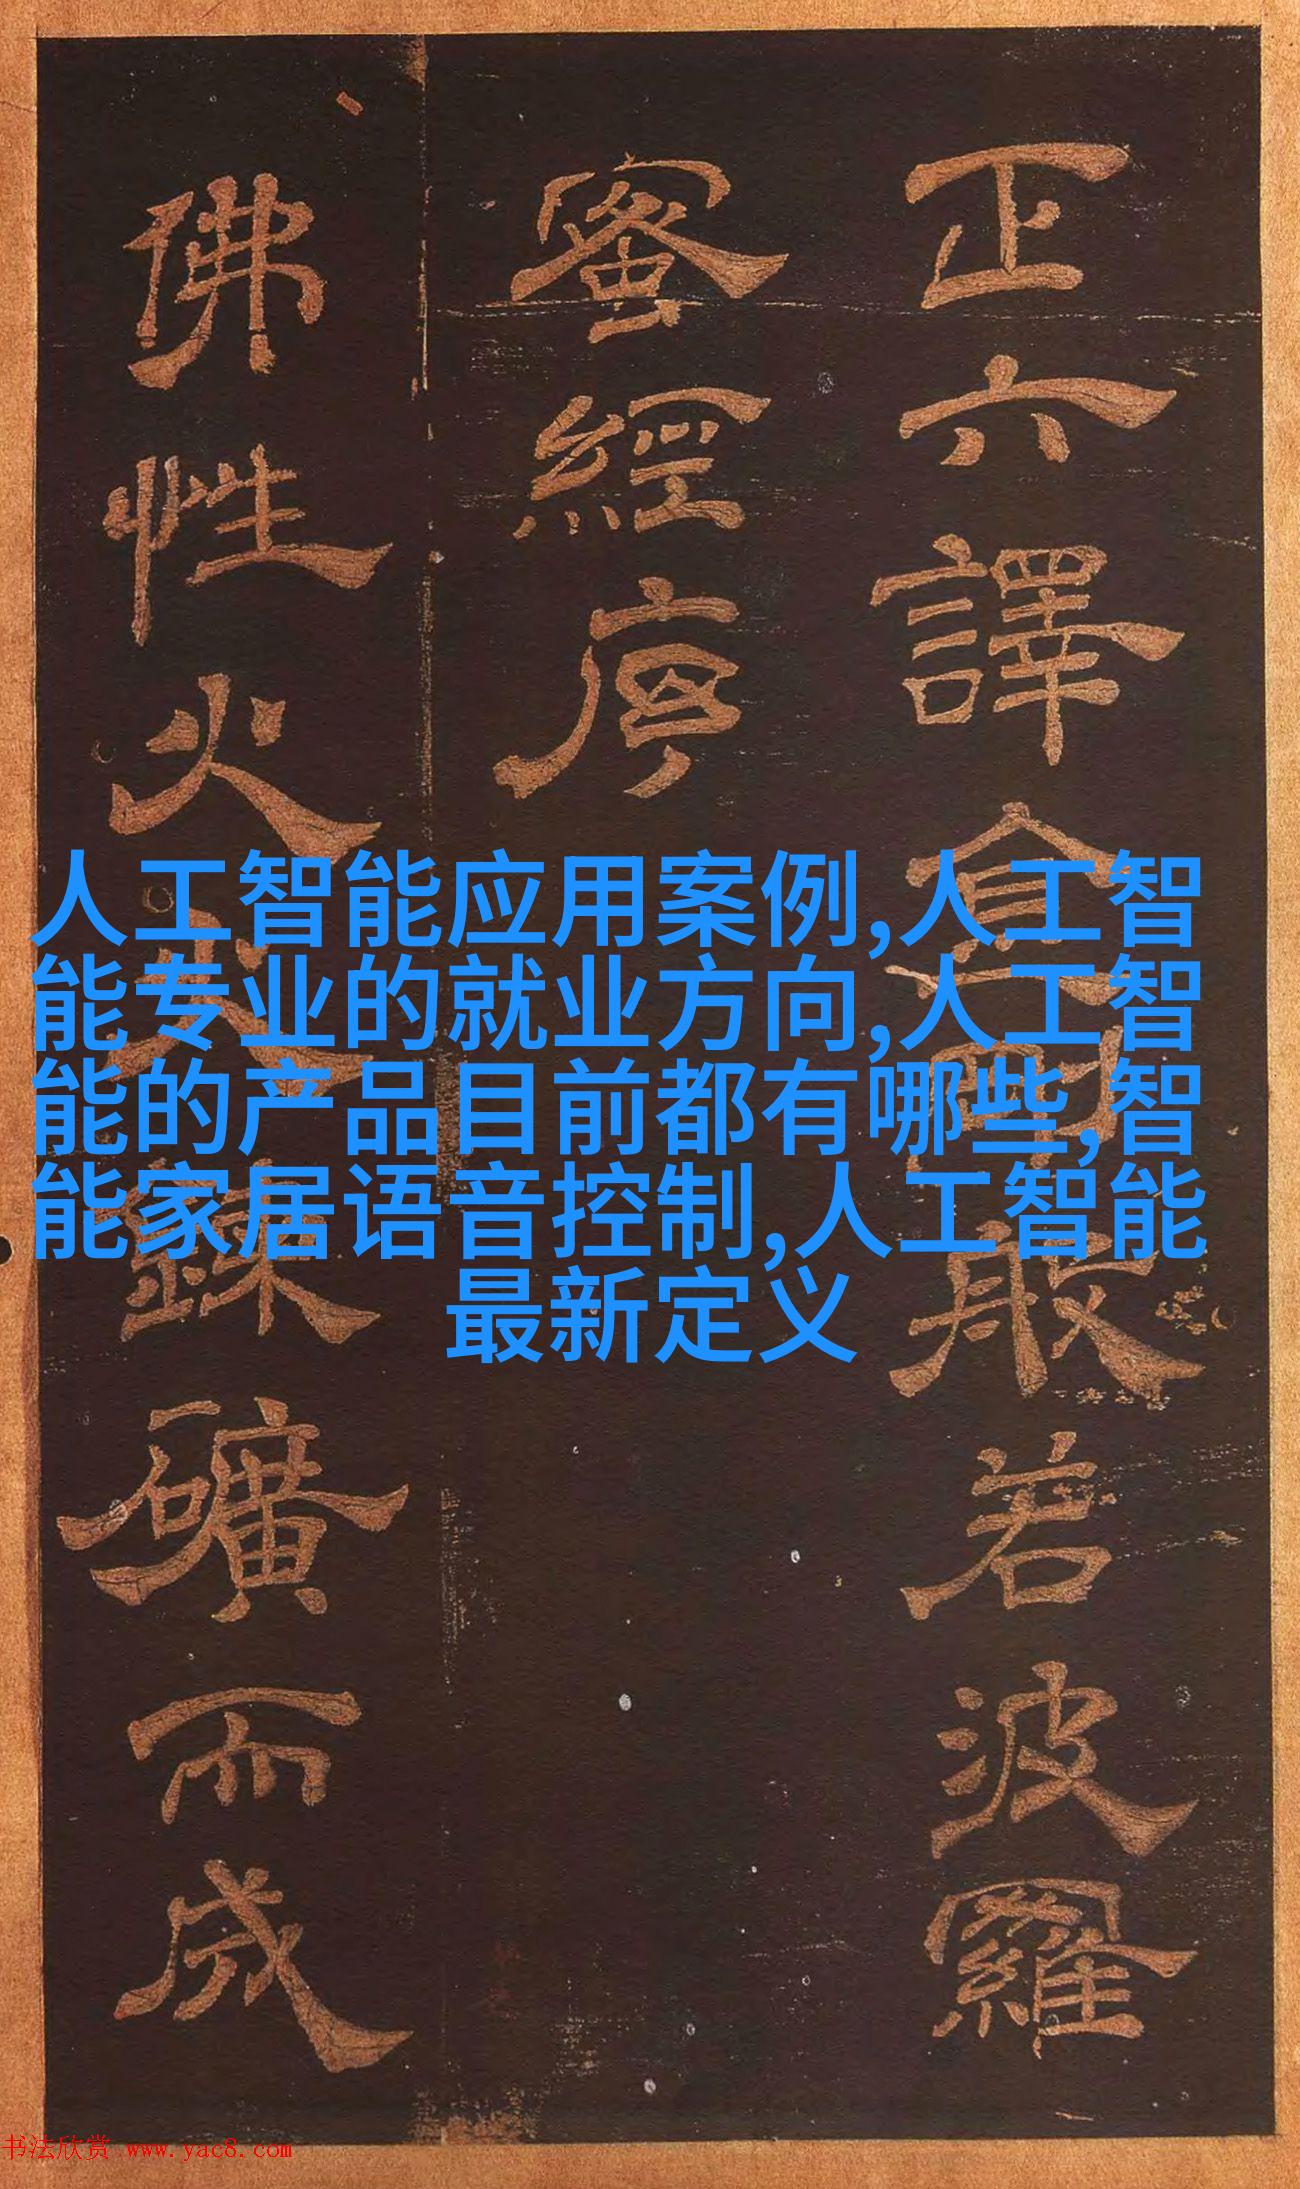 正六譯金剛般若波羅
蜜經序
佛性火鍊礦而成
人工智能应用案例,人工智
能专业的就业方向,人工智
能的产品目前都有哪些,智
能家居语音控制,人工智能
最新定义
书法欣赏 www.yac8.com